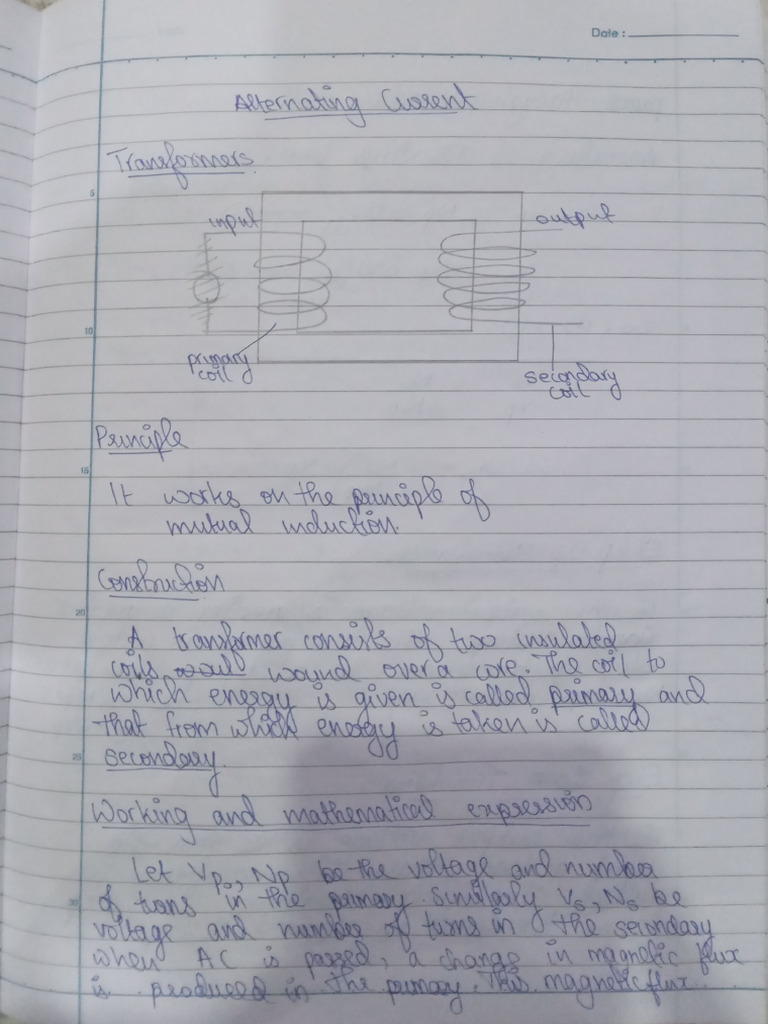 Date :
Alternating Current
Transformers
5
input
output
10
primary
coil
secondary
coil
Principle
15
It works on the principle of
mutual induction.
Construction
20
A transformer consits of two insulated
coils wound over a core. The coil to
which energy is given is called primary and
that from which energy is taken is called
25
secondary.
Working and mathematical expression
Let Vp, Np be the voltage and number
30
of trans in the primary. Similarly Vs, Ns be
voltage and number of turns in the secondary
when AC is passed, a change in magnetic flux
is produced in the primary. This magnetic flux